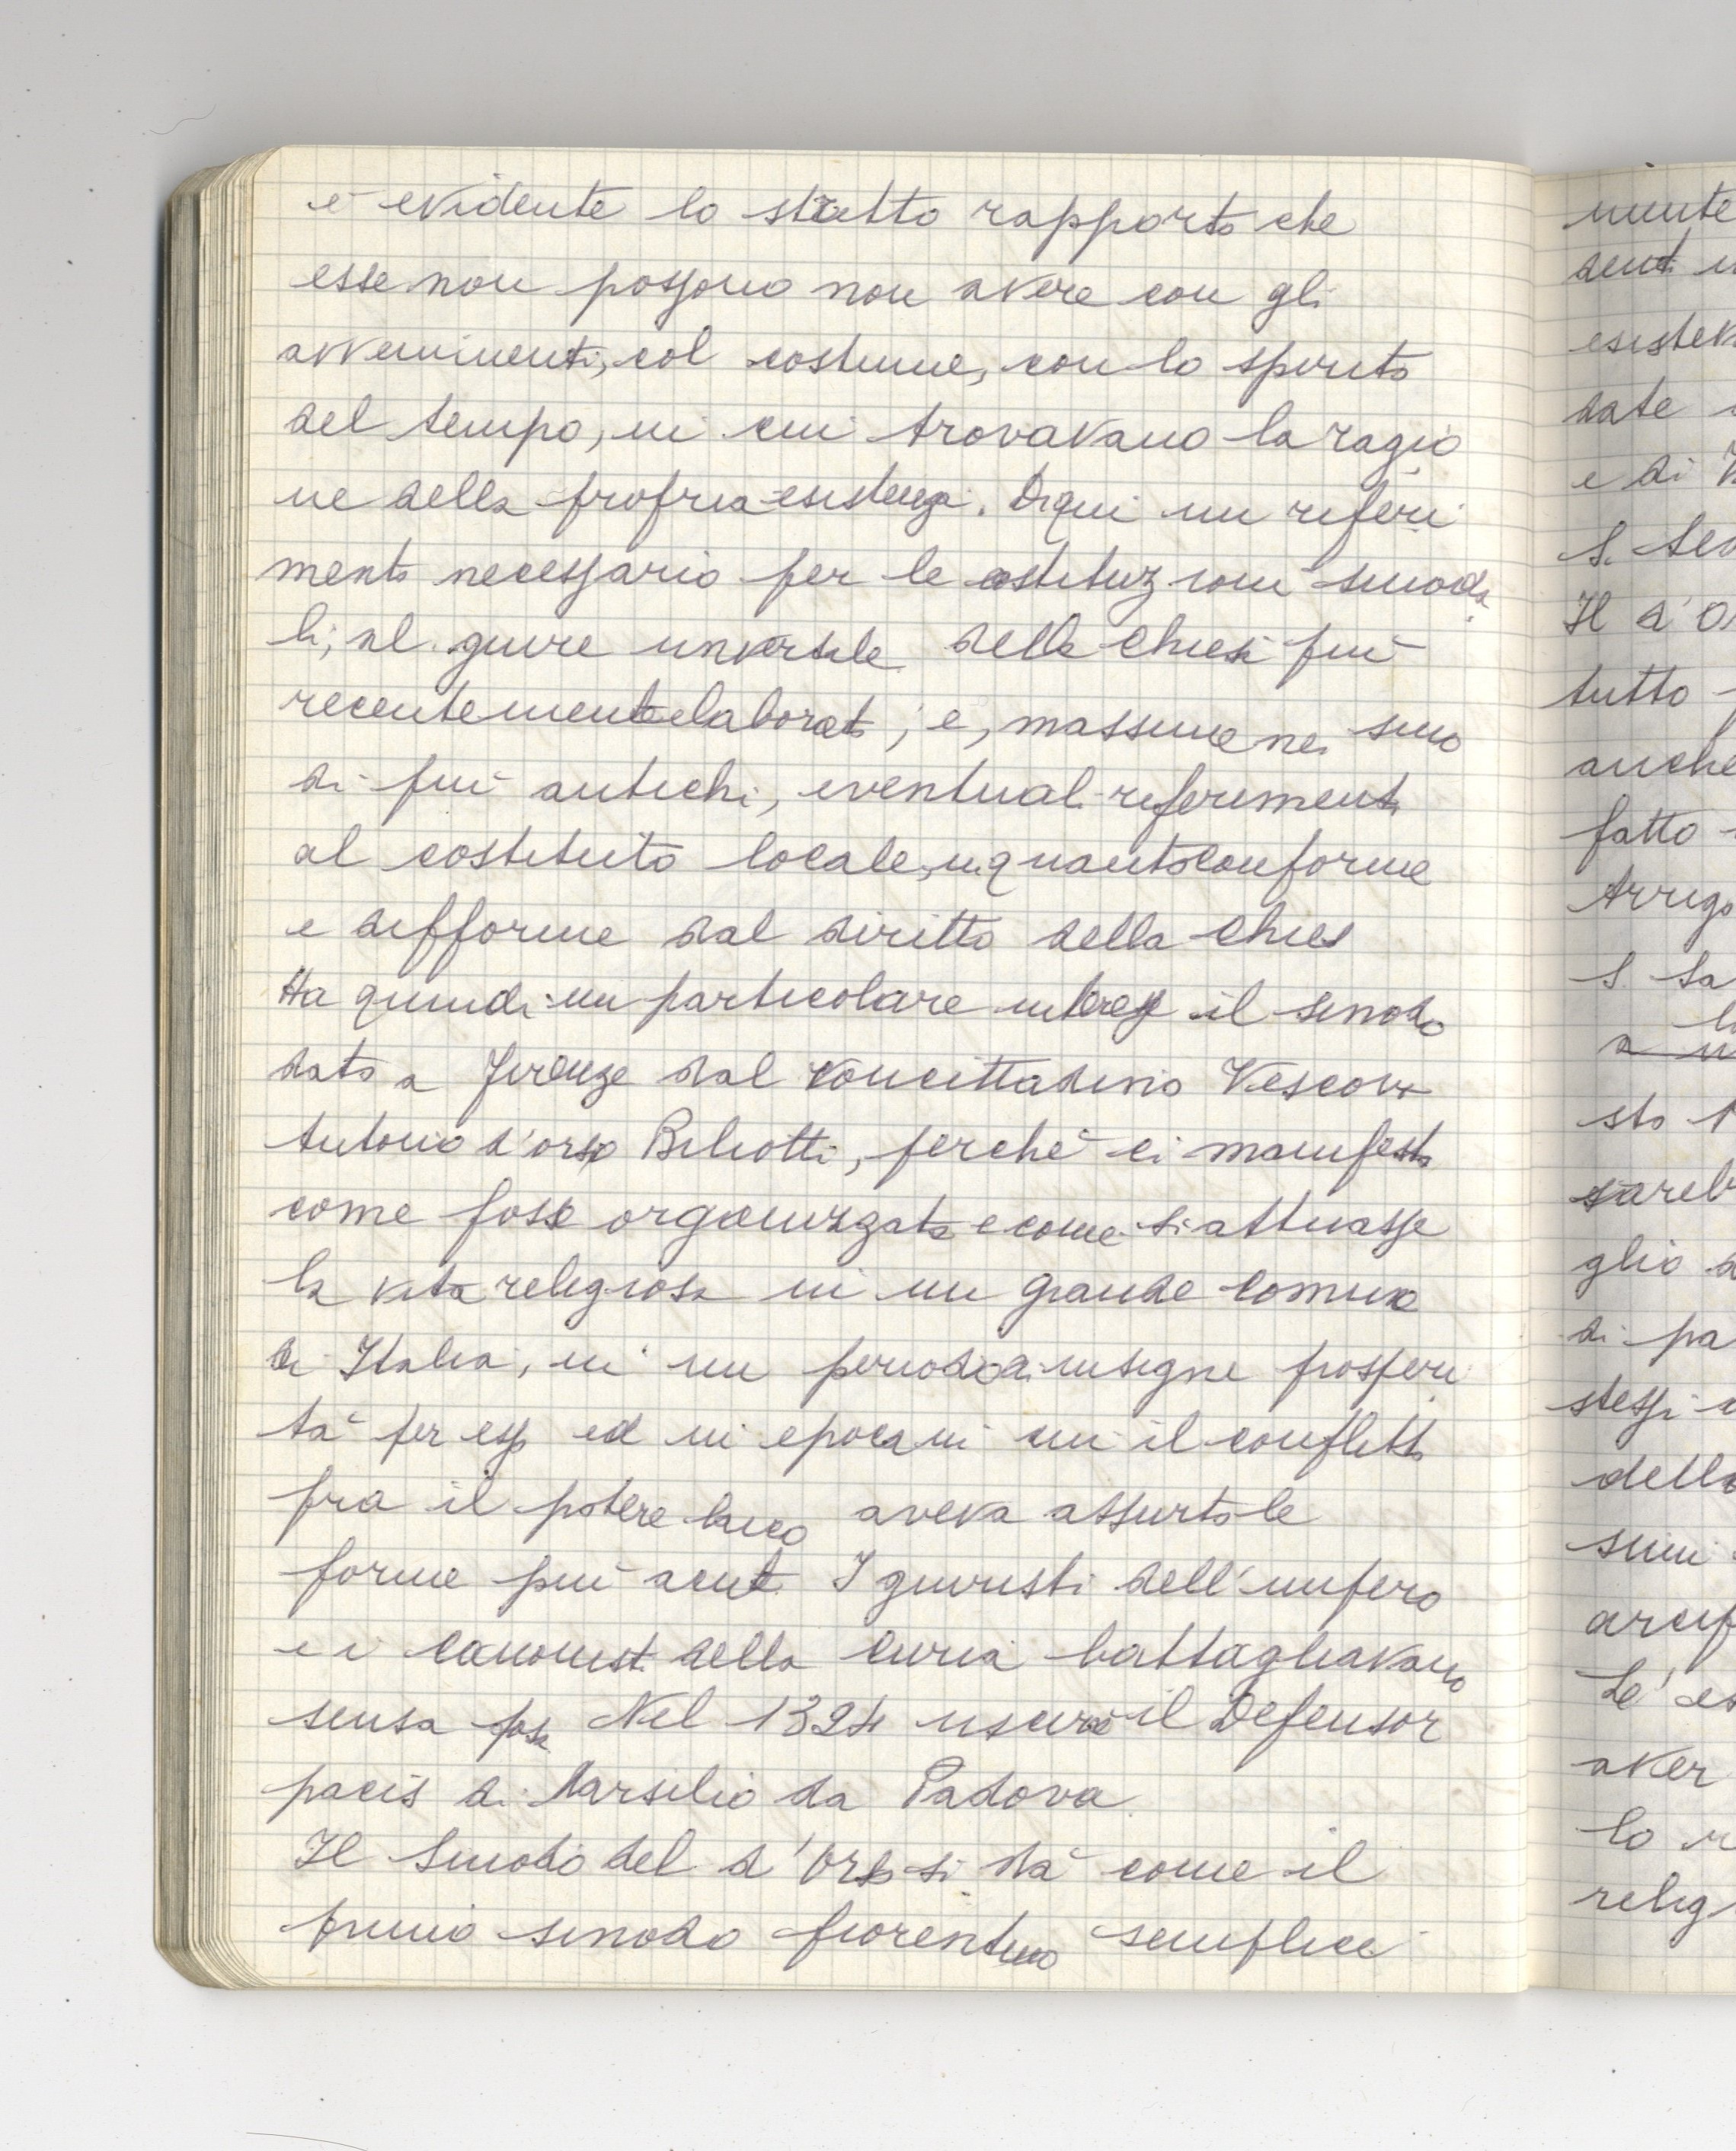 è evidente lo stretto rapporto che
esse non possono non avere con gli
avvenimenti, col costume, con lo spirito
del tempo, in cui trovavano la ragio
ne della propria esistenza. Di qui un riferi
mento necessario per le costituzioni sinoda
li, al giure universale della Chiesa più
recentemente elaborato; e, massime nei sino
di più antichi, eventuali riferimenti
al costituito locale, in quanto conforme
e difforme dal diritto della Chiesa
Ha quindi un particolare interesse il sinodo
dato a Firenze dal concittadino Vescovo
Antonio d'Orso Biliotti, perché ci manifesta
come fosse organizzata e come si attuasse
la vita religiosa in un grande comune
di Italia, in un periodo di insigne prosperi
tà per esso ed in epoca in cui il conflitto
fra il potere laico aveva assunto le
forme più acute. I giuristi dell'impero
e i canonisti della curia battagliavano
senza posa Nel 1324 usciva il Defensor
pacis di Marsilio da Padova
Il Sinodo del d'Orso si dà come il
primo sinodo fiorentino semplice
mente
denti
date
e di
S.
Il d'O
tutto
anche
fatto
Arrigo
S. Sa
sto
sareb
glio
di pa
stessi
della
aver
lo
relig